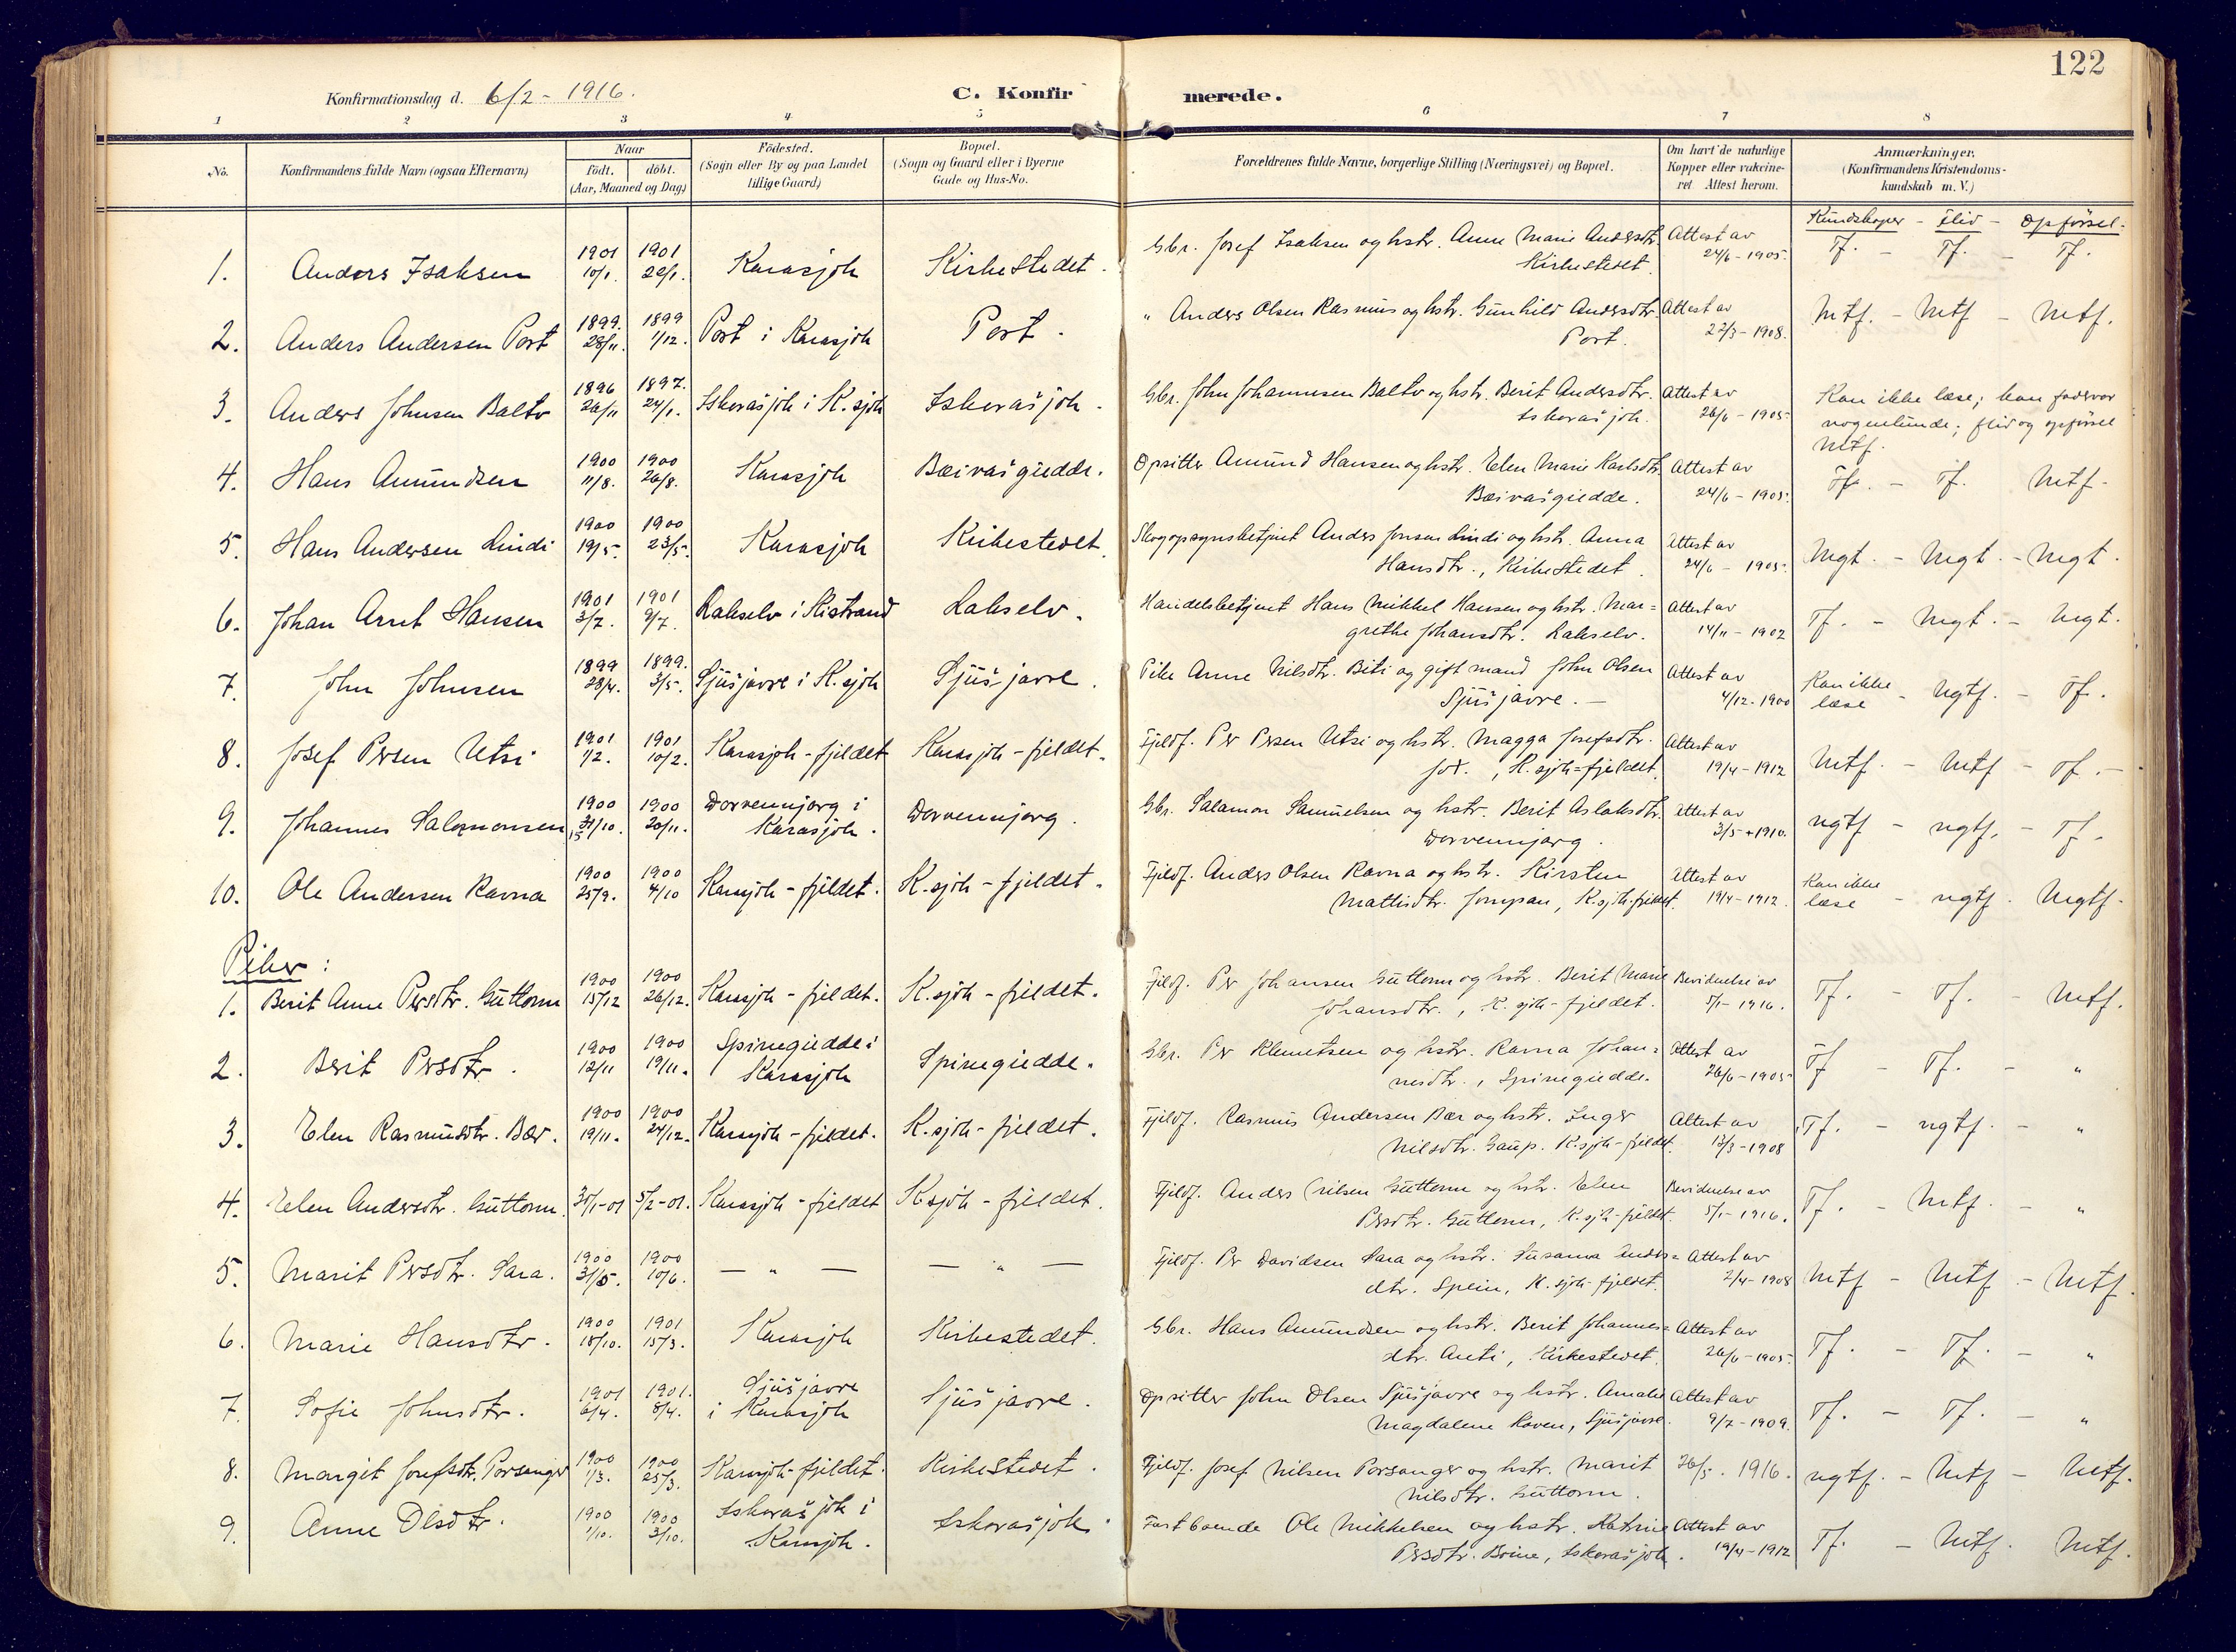 122
Konfirmationsdag d. 6/2 - 1916.
C. Konfirmerede.
1 2 3 4 5 6 7 8
No.
Konfirmandens fulde Navn (ogsaa Efternavn)
Naar
født. døbt.
(Aar, Maaned og Dag)
Fødested.
(Sogn eller By og paa Landet
tillige Gaard)
Bopæl.
(Sogn og Gaard eller i Byerne
Gade og Hus-No.
Forældrenes fulde Navne, borgerlige Stilling (Næringsvei) og Bopæl.
Om havt de naturlige
Kopper eller vakcine-
ret Attest herom.
Anmærkninger.
(Konfirmandens Kristendoms-
kundskab m. V.)
Kundskaper - Flid - Opførsel.
1. Anders Isaksen 1901 10/1. 1901 22/1. Karasjok Kirkestedet. Gbr. Josef Isaksen og hstr. Anne Marie Andersdtr. Attest av Tf. - Tf. - Tf.
Kirkestedet. 24/6 - 1905.
2. Anders Andersen Port 1899. 28/11. 1899 1/12. Port i Karasjok Port. " Anders Olsen Rasmus og hstr. Gunhild Andersdtr. Attest av Mtf. - Mtf - Mtf.
Port. 22/3 - 1908.
3. Anders Johnsen Balto 1896 26/11 1897. 24/1. Iskorašjok i K.sjok Iskorašjok. Gbr. John Johannesen Balto og hstr. Berit Andersdtr. Attest av Kan ikke læse; kan fadervor
Iskorašjok. 26/6 - 1905 nogenlunde; flid og opførsel
Mtf.
4. Hans Amundsen 1900 11/8. 1900 26/8. Karasjok Bæivašgiedde. Opsitter Amund Hansen og hstr. Elen Marie Karlsdtr. Attest av Tf. - Tf. Mtf.
Bæivašgiedde. 24/6 - 1905.
5. Hans Andersen Lindi 1900 19/5. 1900 23/5. Karasjok Kirkestedet. Skogopsynsbetjent Anders Jonsen Lindi og hstr. Anna Attest av Mgt. - Mgt. - Mgt.
Hansdtr., Kirkestedet. 24/6 - 1905.
6. Johan Arnt Hansen 1901 3/7. 1901 9/7. Lakselv i Kistrand Lakselv. Handelsbetjent Hans Mikkel Hansen og hstr. Mar= Attest av Tf. - Mgt. - Mgt.
grethe Johansdtr. Lakselv. 14/11 - 1902
7. John Johnsen 1899 28/4. 1899. 3/5. Sjušjavre i K.sjok Sjušjavre. Pike Anne Nilsdtr. Biti og gift mand John Olsen Attest av Kan ikke læse - Ngtf. - Tf.
Sjušjavre. - 4/12. 1900
8. Josef Persen Utsi 1901 1/2. 1901 10/2. Karasjok-fjeldet Karasjok-fjeldet. Fjeldf. Per Persen Utsi og hstr. Magga Josefsdtr. Attest av Mtf. - Mtf - Tf. -
, K.sjok=fjeldet. 19/4 - 1912
9. Johannes Salomonsen 1900 31/10. 1900 20/11. Dorvennjarg i Karasjok. Dorvennjarg. Gbr. Salamon Samuelsen og hstr. Berit Aslaksdtr. Attest av ngtf - ngtf. - Tf.
Dorvennjarg. 3/5 - 1910.
10. Ole Andersen Ravna 1900 25/9. 1900 4/10 Karasjok-fjeldet. K.sjok-fjeldet. Fjeldf. Anders Olsen Ravna og hstr. Kirsten Attest av Kan ikke læse - ngtf. Mgtf.
Mattisdtr. Jompan, K.sjok-fjeldet. 19/4 - 1912.
Piker:
1. Berit Anne Persdtr. Guttorm 1900 15/12 1900 26/12. Karasjok-fjeldet. K.sjok-fjeldet. Fjeldf. Per Johansen Guttorm og hstr. Berit Marie Bevidnelse av Tf. - Tf. - Mtf.
Johansdtr., K.sjok-fjeldet. 5/1 - 1916.
2. Berit Persdtr. 1900 12/11 1900 19/11. Spinegiedde i Karasjok Spinegiedde. Gbr. Per Klemetsen og hstr. Ravna Johan= Attest av Tf - Tf. - "
nesdtr., Spinegiedde. 26/6 - 1905
3. Elen Rasmusdtr. Bær. 1900 19/11. 1900 24/12. Karasjok-fjeldet. K.sjok-fjeldet. Fjeldf. Rasmus Andersen Bær og hstr. Inger Attest av Tf. - ngtf. - "
Nilsdtr. Gaup. K.sjok-fjeldet. 13/3 - 1908
4. Elen Andersdtr. Guttorm. 30/1-01 5/2-01. Karasjok-fjeldet K.sjok-fjeldet. Fjeldf. Anders Nilsen Guttorm og hstr. Elen Bevidnelse av Tf. - Mtf. - "
Persdtr. Guttorm, K.sjok-fjeldet. 5/1 - 1916.
5. Marit Persdtr. Sara. 1900 31/5. 1900 10/6. - " - - " - Fjeldf. Per Davidsen Sara og hstr. Susanna Anders= Attest av Mtf - Mtf - Mtf.
dtr. Spein, K.sjok-fjeldet. 2/4 - 1908
6. Marie Hansdtr. 1900 18/10. 1901 15/3. Karasjok Kirkestedet. Gbr. Hans Amundsen og hstr. Berit Johannes= Attest av Tf. - Tf. - "
dtr. Anti, Kirkestedet. 26/6 - 1905.
7. Sofie Johnsdtr. 1901 6/4. 1901. 8/4. Sjušjavre i Karasjok Sjušjavre. Opsitter John Olsen Sjušjavre og hstr. Amalie Attest av Tf. - Tf. - "
Magdalene Koven, Sjušjavre. 9/7 - 1909.
8. Margit Josefsdtr. Porsanger 1900 1/3. 1900 25/3. Karasjok-fjeldet. Kirkestedet. Fjeldf. Josef Nilsen Porsanger og hstr. Marit 26/5. 1916. ngtf. - Mtf - Mtf.
Nilsdtr. Guttorm.
9. Anne Olsdtr. 1900 1/10. 1900 3/10. Iskorašjok i Karasjok. Iskorašjok. Fastboende Ole Mikkelsen og hstr. Katrine Attest av Tf. - Mtf. Mtf.
Persdtr. Boine, Iskorašjok. 19/4 - 1912